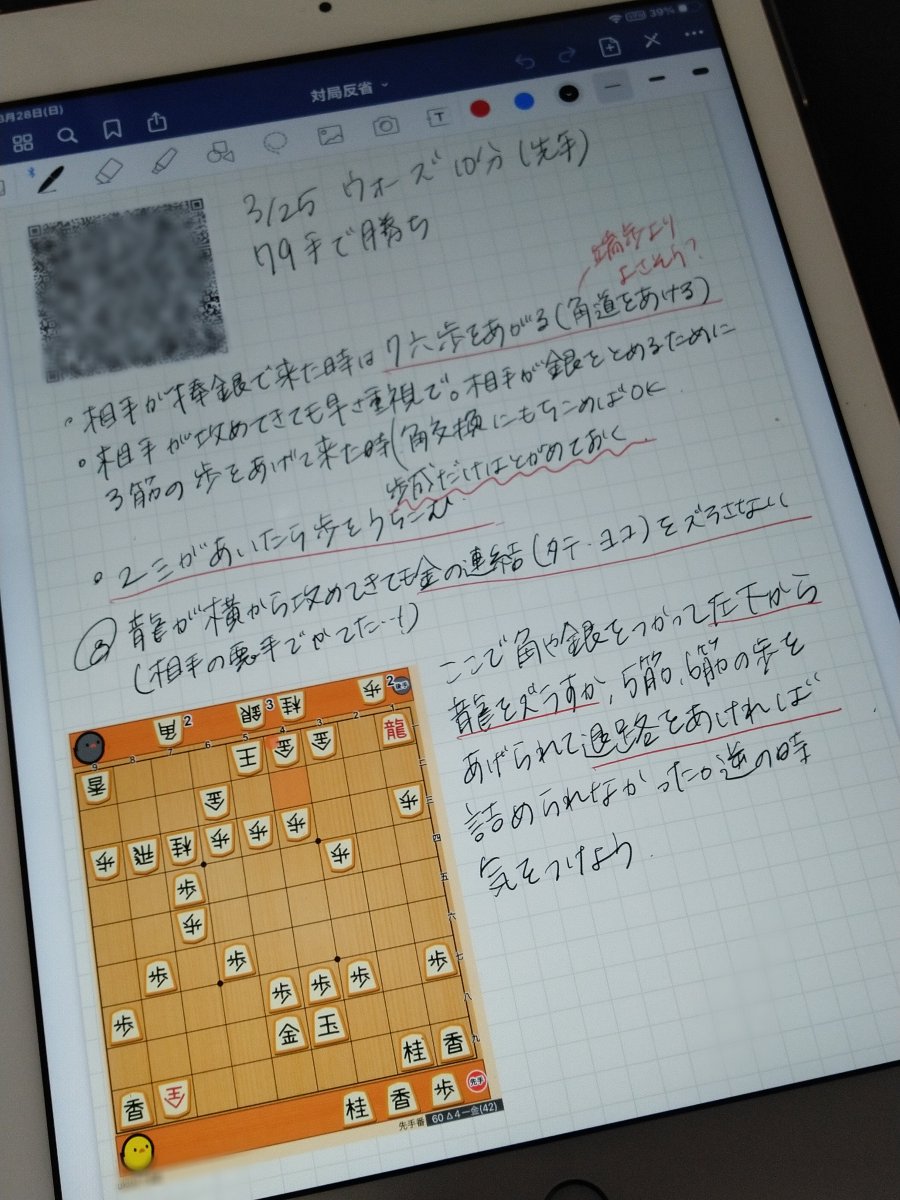 39%
3月28日(日)
対局反省
T
3/25 ウォーズ 10分 (先手)
79手で勝ち
端歩より
よさそう?
・相手が棒銀で来た時は7六歩をあがる(角道をあける)
・相手が攻めてきても早さ重視で。相手が銀をとめるために
3筋の歩をあげて来た時(角交換にもちこめばOK
歩成だけはとがめておく
・2三があいたら歩をうちこむ
龍が横から攻めてきても金の連結(タテ・ヨコ)をズラさない
(相手の悪手でかてた…!)
ここで角や銀をつかって左下から
龍をズラすか、5筋、6筋の歩を
あげられて退路をあければ
詰められなかったが逆の時
気をつけよう.
角2 銀 桂3 歩2 後手
9 8 7 6 5 4 3 2 1
王 金 金 龍 一
香 二
金 歩 三
歩 飛 桂 歩 歩 歩 四
歩 歩 五
歩 六
歩 歩 歩 七
歩 歩 歩 八
歩 金 玉
桂 香 九
香 王
桂 香 歩 先手
先手番 60△4一金(42)